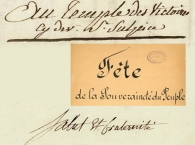 Au Temple des Victoires
cy dev. St Sulpice
Fête
de la Souveraineté du Peuple
Salut et fraternité